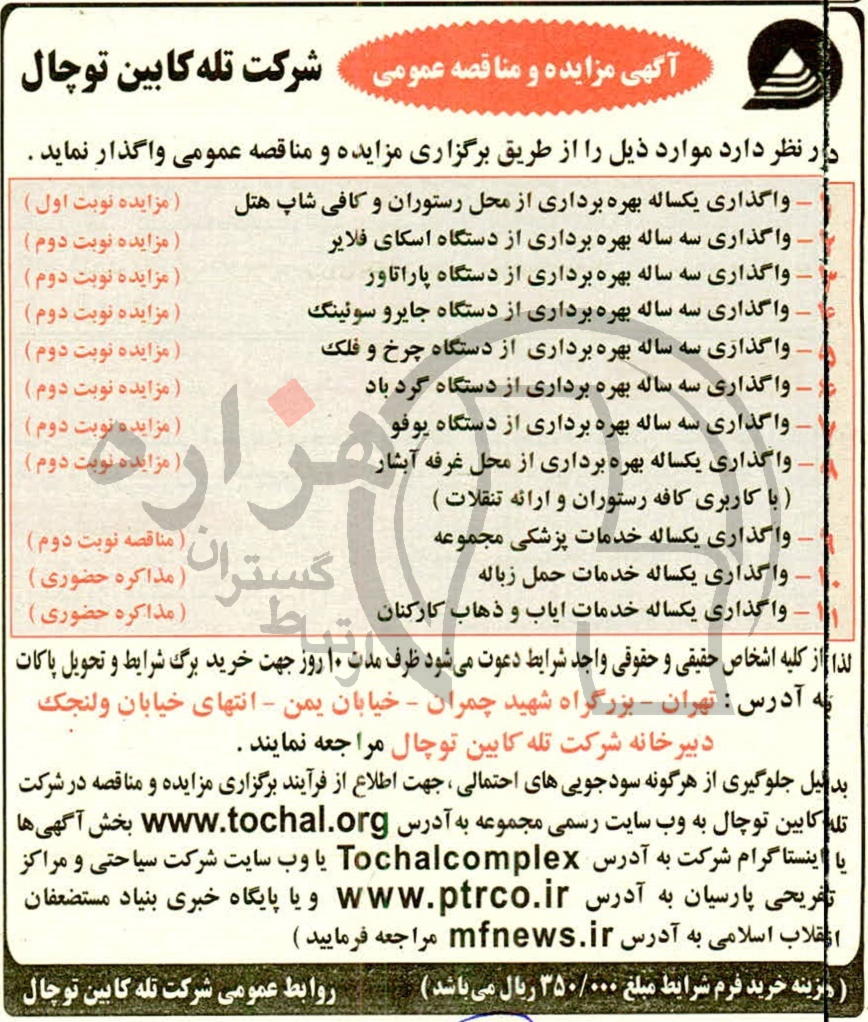 آگهی مزایده و مناقصه عمومی
شرکت تله کابین توچال
در نظر دارد موارد ذیل را از طریق برگزاری مزایده و مناقصه عمومی واگذار نماید .
۱ – واگذاری یکساله بهره برداری از محل رستوران و کافی شاپ هتل ( مزایده نوبت اول )
۲ – واگذاری سه ساله بهره برداری از دستگاه اسکای فلایر ( مزایده نوبت دوم )
۳ – واگذاری سه ساله بهره برداری از دستگاه پاراتاور ( مزایده نوبت دوم )
۴ – واگذاری سه ساله بهره برداری از دستگاه جایرو سوئینگ ( مزایده نوبت دوم )
۵ – واگذاری سه ساله بهره برداری از دستگاه چرخ و فلک ( مزایده نوبت دوم )
۶ – واگذاری سه ساله بهره برداری از دستگاه گرد باد ( مزایده نوبت دوم )
۷ – واگذاری سه ساله بهره برداری از دستگاه یوفو ( مزایده نوبت دوم )
۸ – واگذاری یکساله بهره برداری از محل غرفه آبشار ( مزایده نوبت دوم )
( با کاربری کافه رستوران و ارائه تنقلات )
۹ – واگذاری یکساله خدمات پزشکی مجموعه ( مناقصه نوبت دوم )
۱۰ – واگذاری یکساله خدمات حمل زباله ( مذاکره حضوری )
۱۱ – واگذاری یکساله خدمات ایاب و ذهاب کارکنان ( مذاکره حضوری )
لذا از کلیه اشخاص حقیقی و حقوقی واجد شرایط دعوت می‌شود ظرف مدت ۱۰ روز جهت خرید برگ شرایط و تحویل پاکات
به آدرس : تهران – بزرگراه شهید چمران – خیابان یمن – انتهای خیابان ولنجک
دبیرخانه شرکت تله کابین توچال مراجعه نمایند .
بدلیل جلوگیری از هرگونه سودجویی های احتمالی ، جهت اطلاع از فرآیند برگزاری مزایده و مناقصه در شرکت
تله کابین توچال به وب سایت رسمی مجموعه به آدرس www.tochal.org بخش آگهی ها
یا اینستاگرام شرکت به آدرس Tochalcomplex یا وب سایت شرکت سیاحتی و مراکز
تفریحی پارسیان به آدرس www.ptrco.ir و یا پایگاه خبری بنیاد مستضعفان
انقلاب اسلامی به آدرس mfnews.ir مراجعه فرمایید )
( هزینه خرید فرم شرایط مبلغ ۳۵۰/۰۰۰ ریال می باشد ) روابط عمومی شرکت تله کابین توچال
هزاره
گستران
ارتباط